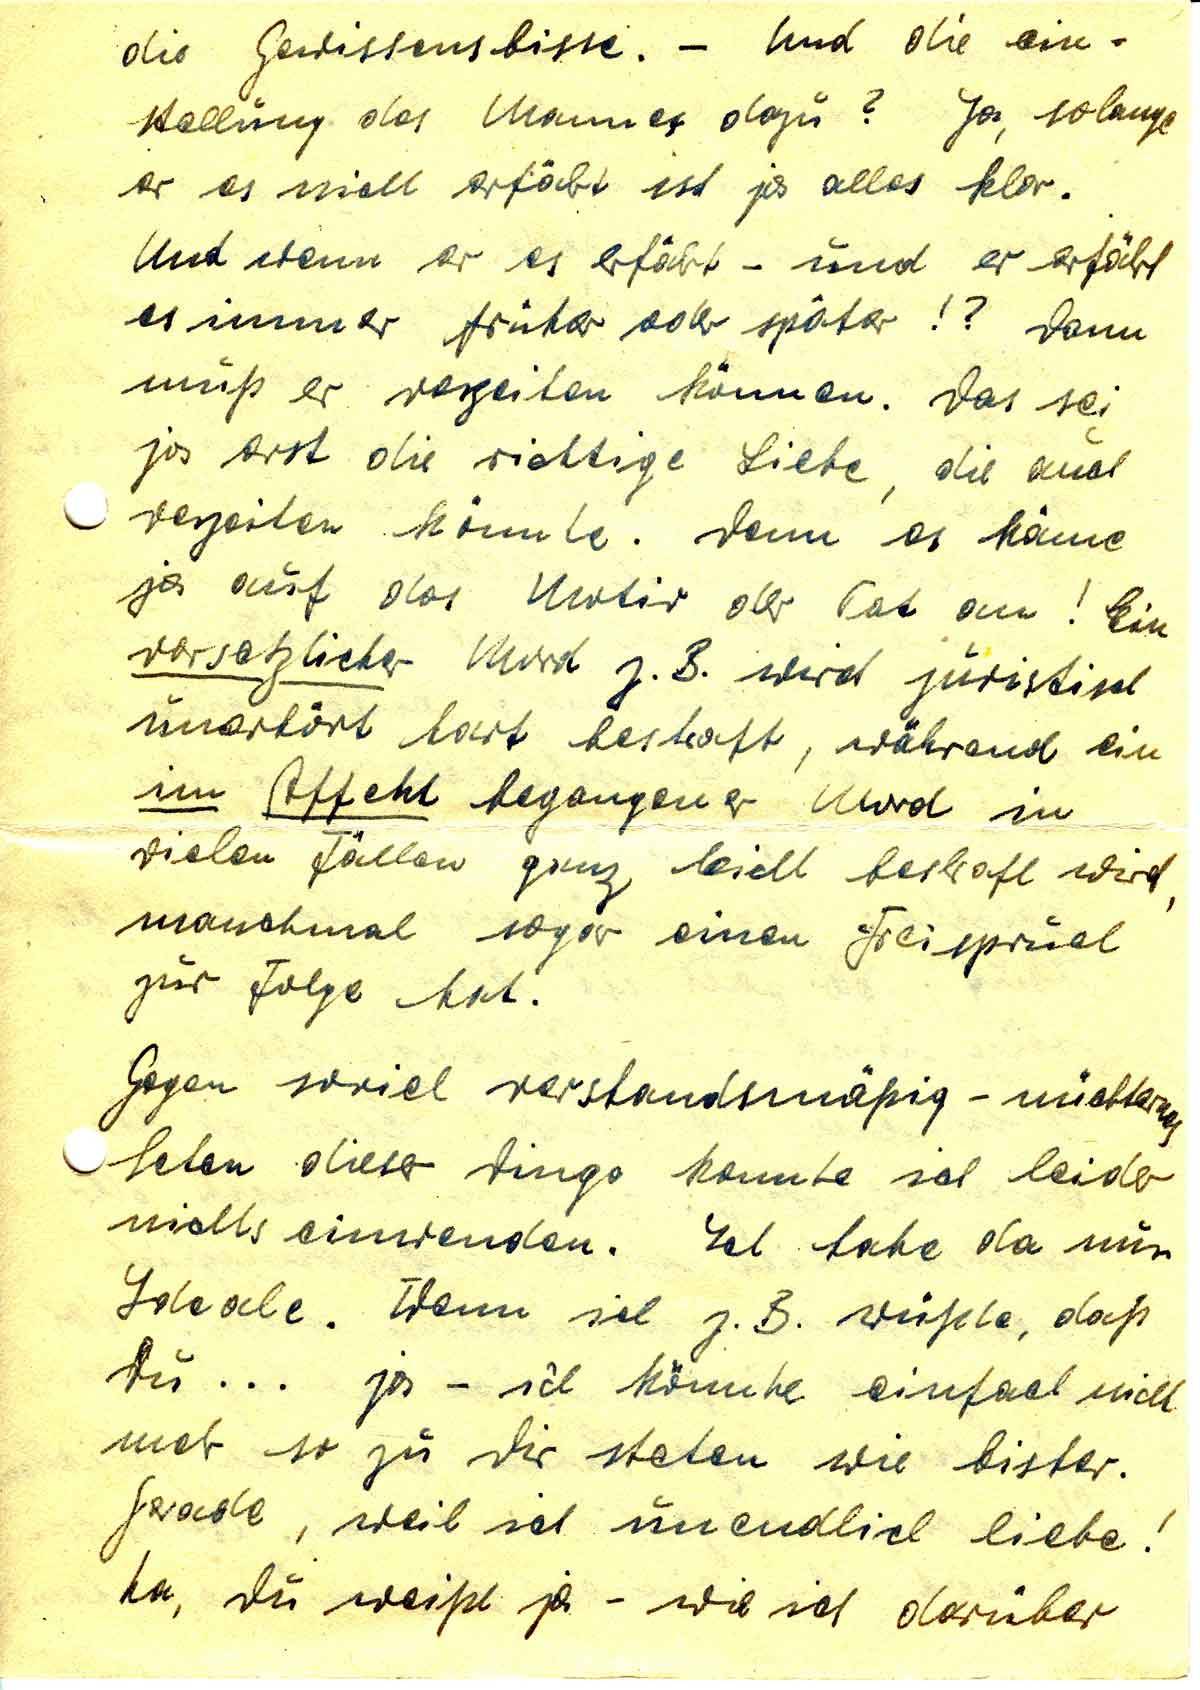 die Gewissensbisse. – Und die ein-
stellung des Mannes dazu? Ja, solange
er es nicht erfährt ist ja alles klar.
Und wenn er es erfährt – und er erfährt
es immer früher oder später!? Dann
muß er verzeihen können. Das sei
ja erst die richtige Liebe, die auch
verzeihen könnte. Denn es käme
ja auf das Motiv der Tat an! Ein
vorsetzlicher Mord z.B. wird juristisch
unerhört hart bestraft, während ein
im Affekt begangener Mord in
vielen Fällen ganz leicht bestraft wird,
manchmal sogar einen Freispruch
zur Folge hat.
Gegen soviel verstandsmäßig – nüchternes
Sehen dieser Dinge konnte ich leider
nichts einwenden. Ich habe da nur
Ideale. Wenn ich z.B. wüßte, daß
Du ... ja – ich könnte einfach nicht
mehr so zu Dir stehen wie bisher.
Gerade, weil ich unendlich liebe!
Na, Du weißt ja – wie ich darüber